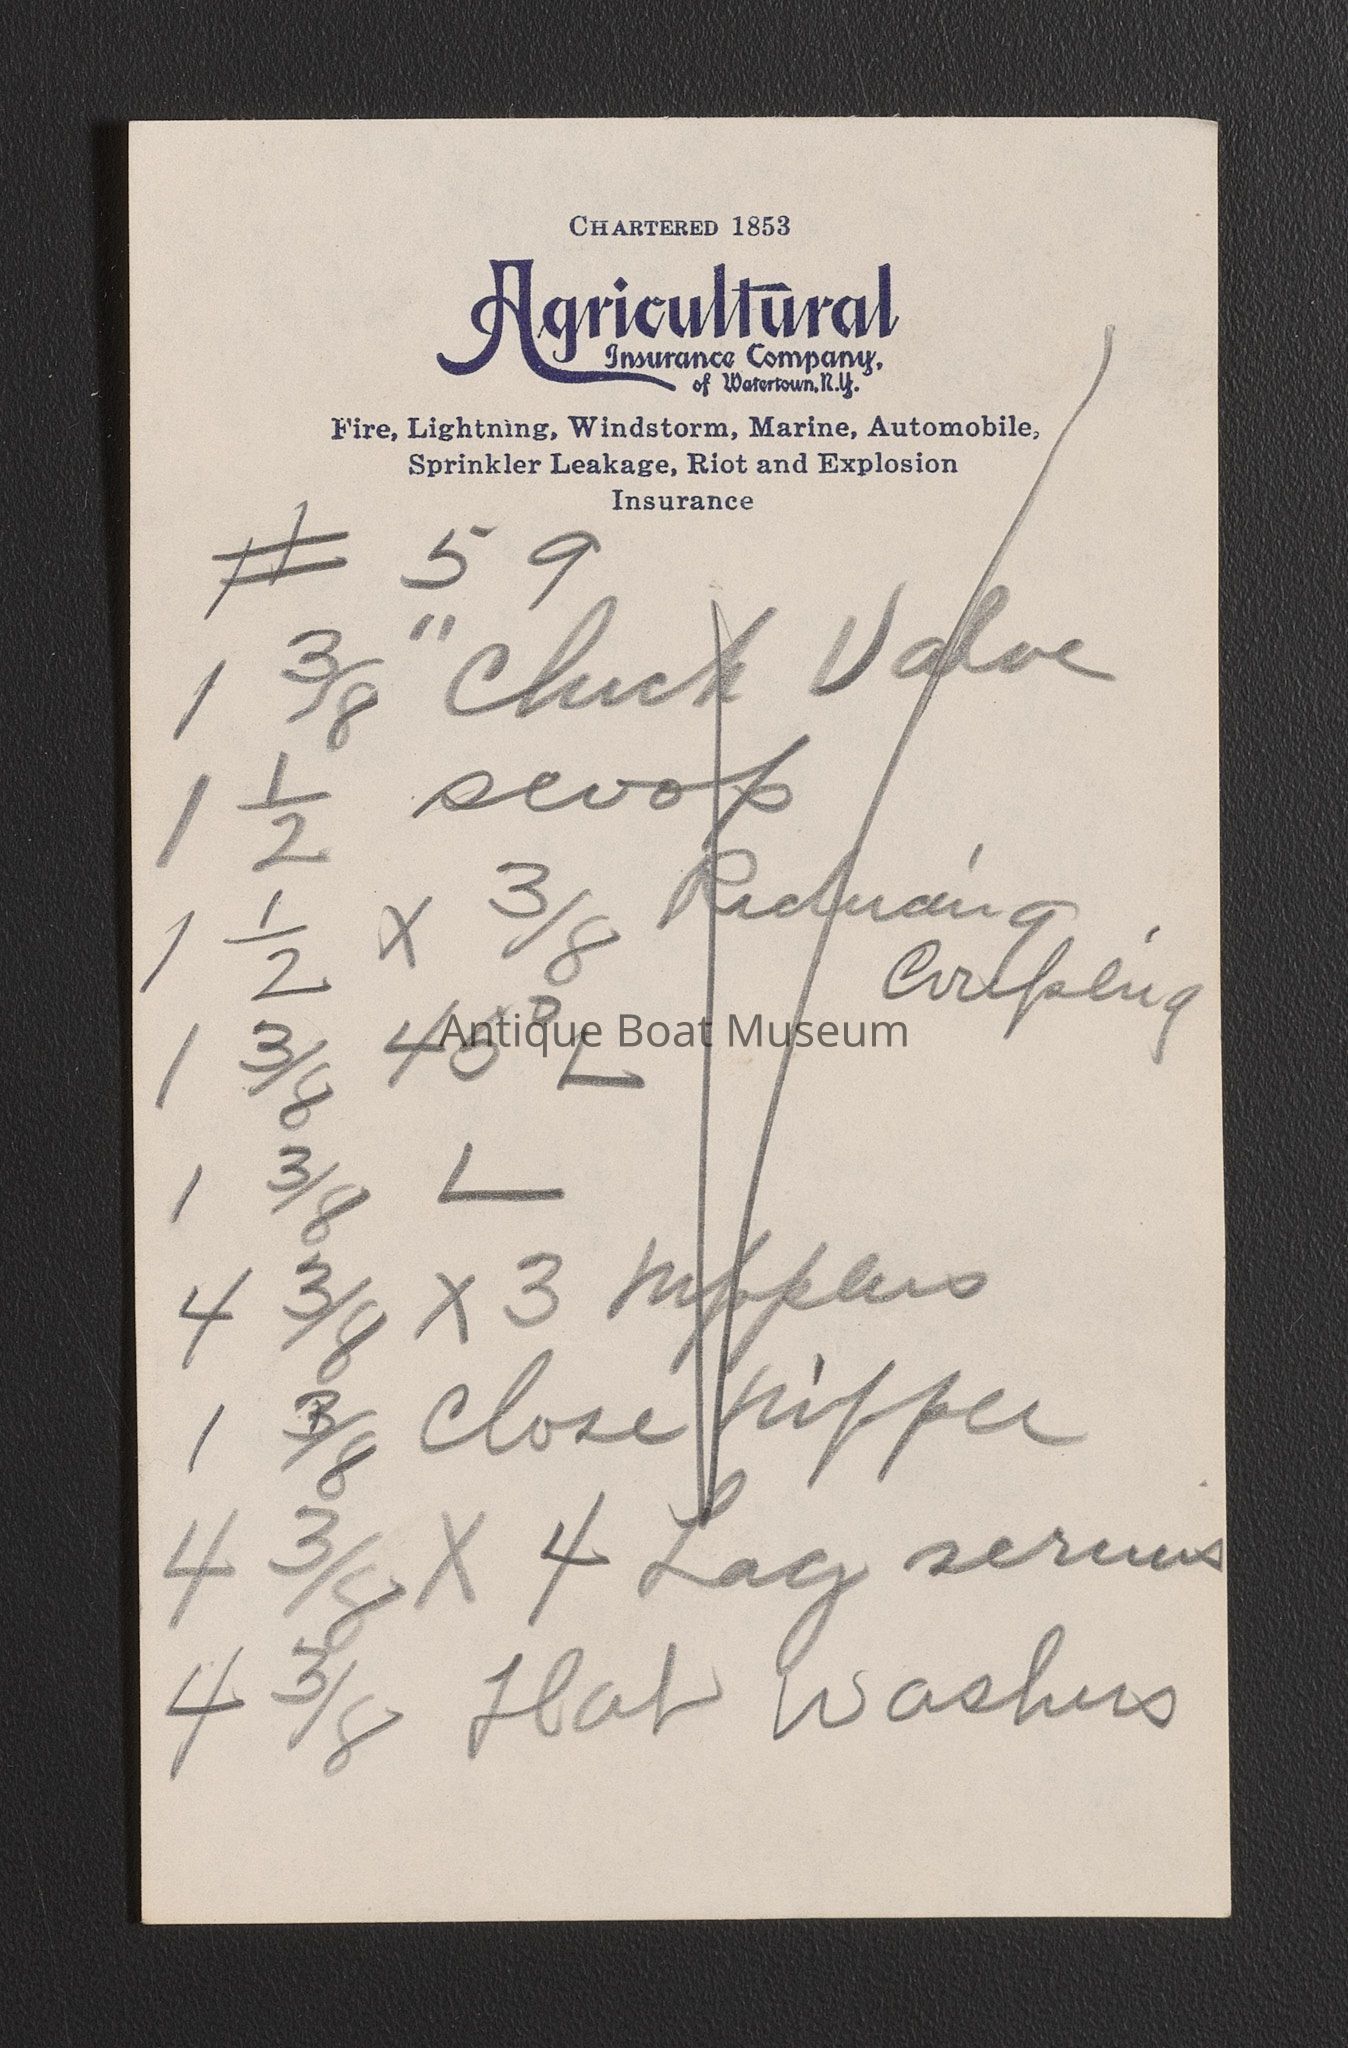 CHARTERED 1853
Agricultural
Insurance Company,
of Watertown, N.Y.
Fire, Lightning, Windstorm, Marine, Automobile,
Sprinkler Leakage, Riot and Explosion
Insurance
# 59
1 3/8" Check Valve
1 1/2 scoop
1 1/2 X 3/8 Reducing
Coupling
1 3/8 45° L
Antique Boat Museum
1 3/8 L
4 3/8 X 3 nipples
1 3/8 Close nipple
4 3/8 X 4 Lag screws
4 3/8 Flat Washers